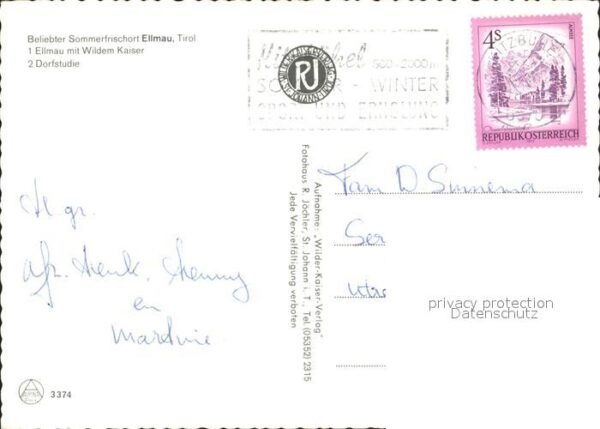 Beliebter Sommerfrischort Ellmau, Tirol
1 Ellmau mit Wildem Kaiser
2 Dorfstudie
Kitzbühel
800-2000 m
SOMMER - WINTER
SPORT UND ERHOLUNG
RJ
4S
REPUBLIK ÖSTERREICH
Aufnahme: „Wilder-Kaiser-Verlag"
Fotohaus R. Jöchler, St. Johann i. T., Tel. (05352) 2315
Jede Vervielfältigung verboten
Fam D
Ser
Utr
privacy protection
Datenschutz
H. gr.
afz. Henk, Henny
en
Martine.
3374